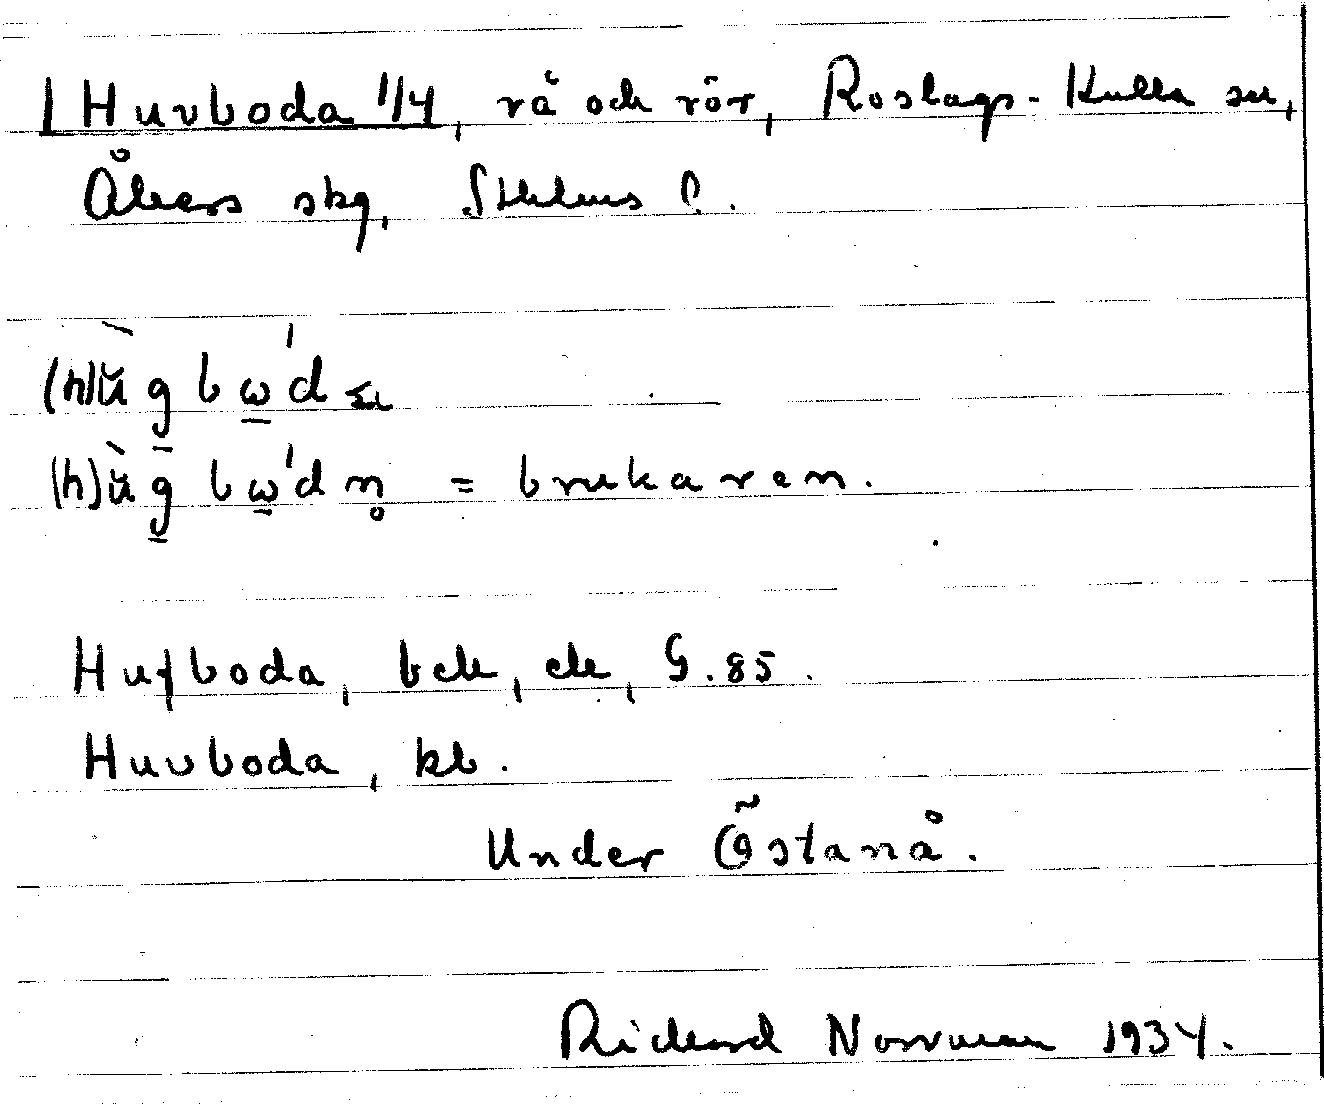 1 Huvboda 1/4, rå och rör, Roslags-Kulla sn,
Åkers skg, Sthlms l.
(h)ùg bω'd
(h)ùg bω'dn̥ = brukaren.
Hufboda, bck, ck, G.85.
Huvboda, kb.
Under Östanå.
Rickard Norrman 1934.